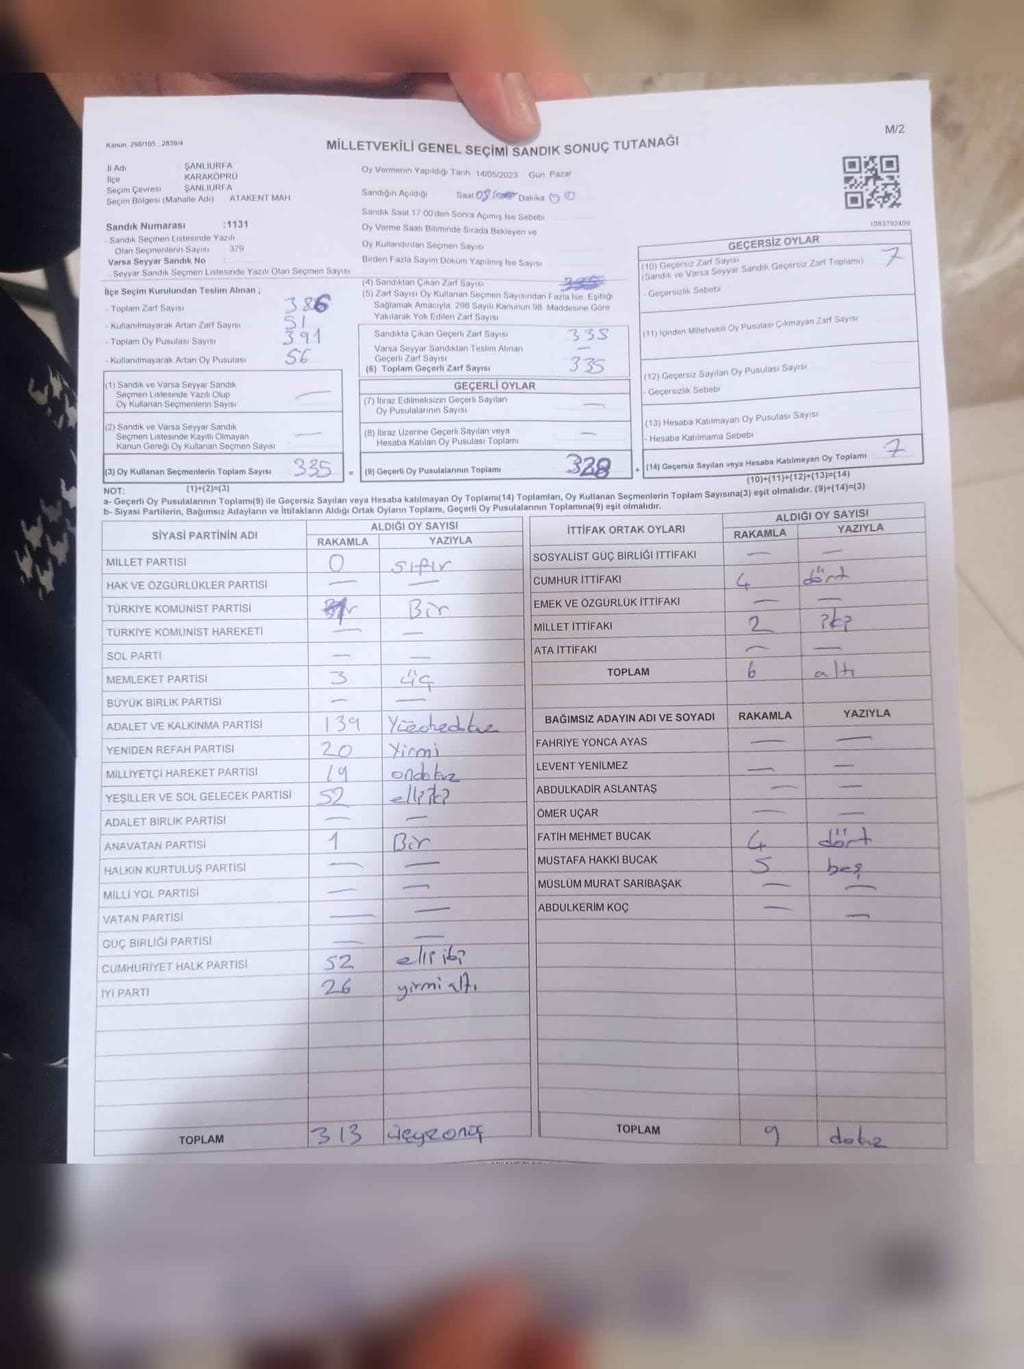 M/2
Kanun: 298/105 : 2839/4
MİLLETVEKİLİ GENEL SEÇİMİ SANDIK SONUÇ TUTANAĞI
İl Adı ŞANLIURFA
İlçe KARAKÖPRÜ
Seçim Çevresi ŞANLIURFA
Seçim Bölgesi (Mahalle Adı) ATAKENT MAH.
Sandık Numarası :1131
- Sandık Seçmen Listesinde Yazılı
Olan Seçmenlerin Sayısı 379
Varsa Seyyar Sandık No :
- Seyyar Sandık Seçmen Listesinde Yazılı Olan Seçmen Sayısı
İlçe Seçim Kurulundan Teslim Alınan ;
- Toplam Zarf Sayısı 386
- Kullanılmayarak Artan Zarf Sayısı 51
- Toplam Oy Pusulası Sayısı 391
- Kullanılmayarak Artan Oy Pusulası 56
(1) Sandık ve Varsa Seyyar Sandık
Seçmen Listesinde Yazılı Olup
Oy Kullanan Seçmenlerin Sayısı —
(2) Sandık ve Varsa Seyyar Sandık
Seçmen Listesinde Kayıtlı Olmayan
Kanun Gereği Oy Kullanan Seçmen Sayısı —
(3) Oy Kullanan Seçmenlerin Toplam Sayısı 335 =
(1)+(2)=(3)
Oy Vermenin Yapıldığı Tarih 14/05/2023 Gün Pazar
Sandığın Açıldığı Saat 08 Dakika 00
Sandık Saat 17.00'den Sonra Açılmış İse Sebebi
Oy Verme Saati Bitiminde Sırada Bekleyen ve
Oy Kullandırılan Seçmen Sayısı
Birden Fazla Sayım Döküm Yapılmış İse Sayısı
(4) Sandıktan Çıkan Zarf Sayısı
(5) Zarf Sayısı Oy Kullanan Seçmen Sayısından Fazla İse, Eşitliği
Sağlamak Amacıyla, 298 Sayılı Kanunun 98. Maddesine Göre
Yakılarak Yok Edilen Zarf Sayısı
Sandıkta Çıkan Geçerli Zarf Sayısı 335
Varsa Seyyar Sandıktan Teslim Alınan
Geçerli Zarf Sayısı —
(6) Toplam Geçerli Zarf Sayısı 335
GEÇERLİ OYLAR
(7) İtiraz Edilmeksizin Geçerli Sayılan
Oy Pusulalarının Sayısı —
(8) İtiraz Üzerine Geçerli Sayılan veya
Hesaba Katılan Oy Pusulası Toplamı —
(9) Geçerli Oy Pusulalarının Toplamı 328 +
1083792409
GEÇERSİZ OYLAR
(10) Geçersiz Zarf Sayısı 7
(Sandık ve Varsa Seyyar Sandık Geçersiz Zarf Toplamı)
- Geçersizlik Sebebi
(11) İçinden Milletvekili Oy Pusulası Çıkmayan Zarf Sayısı
(12) Geçersiz Sayılan Oy Pusulası Sayısı
- Geçersizlik Sebebi
(13) Hesaba Katılmayan Oy Pusulası Sayısı
- Hesaba Katılmama Sebebi
(14) Geçersiz Sayılan veya Hesaba Katılmayan Oy Toplamı 7
(10)+(11)+(12)+(13)=(14)
NOT:
a- Geçerli Oy Pusulalarının Toplamı(9) ile Geçersiz Sayılan veya Hesaba katılmayan Oy Toplamı(14) Toplamları, Oy Kullanan Seçmenlerin Toplam Sayısına(3) eşit olmalıdır. (9)+(14)=(3)
b- Siyasi Partilerin, Bağımsız Adayların ve İttifakların Aldığı Ortak Oyların Toplamı, Geçerli Oy Pusulalarının Toplamına(9) eşit olmalıdır.
SİYASİ PARTİNİN ADI ALDIĞI OY SAYISI
RAKAMLA YAZIYLA
MİLLET PARTİSİ 0 sıfır
HAK VE ÖZGÜRLÜKLER PARTİSİ — —
TÜRKİYE KOMÜNİST PARTİSİ Bir
TÜRKİYE KOMÜNİST HAREKETİ — —
SOL PARTİ — —
MEMLEKET PARTİSİ 3 üç
BÜYÜK BİRLİK PARTİSİ — —
ADALET VE KALKINMA PARTİSİ 139
YENİDEN REFAH PARTİSİ 20 Yirmi
MİLLİYETÇİ HAREKET PARTİSİ 19 ondokuz
YEŞİLLER VE SOL GELECEK PARTİSİ 52 elliiki
ADALET BİRLİK PARTİSİ — —
ANAVATAN PARTİSİ 1 Bir
HALKIN KURTULUŞ PARTİSİ — —
MİLLİ YOL PARTİSİ — —
VATAN PARTİSİ — —
GÜÇ BİRLİĞİ PARTİSİ — —
CUMHURİYET HALK PARTİSİ 52 elli iki
İYİ PARTİ 26 yirmi altı
TOPLAM 313 üçyzonüç
İTTİFAK ORTAK OYLARI ALDIĞI OY SAYISI
RAKAMLA YAZIYLA
SOSYALİST GÜÇ BİRLİĞİ İTTİFAKI — —
CUMHUR İTTİFAKI 4 dört
EMEK VE ÖZGÜRLÜK İTTİFAKI — —
MİLLET İTTİFAKI 2 iki
ATA İTTİFAKI — —
TOPLAM 6 altı
BAĞIMSIZ ADAYIN ADI VE SOYADI RAKAMLA YAZIYLA
FAHRİYE YONCA AYAS — —
LEVENT YENİLMEZ — —
ABDULKADİR ASLANTAŞ — —
ÖMER UÇAR — —
FATİH MEHMET BUCAK 4 dört
MUSTAFA HAKKI BUCAK 5 beş
MÜSLÜM MURAT SARIBAŞAK — —
ABDULKERİM KOÇ — —
TOPLAM 9 dokuz